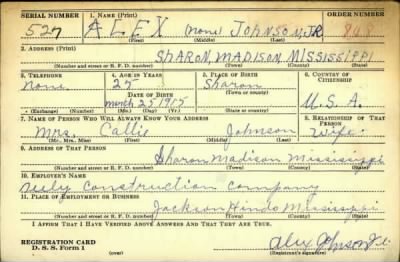 SERIAL NUMBER 1. NAME (Print) ORDER NUMBER
527 ALEX (none) JOHNSON, JR
(First) (Middle) (Last)
2. ADDRESS (Print)
SHARON, MADISON MISSISSIPPI
(Number and street or R. F. D. number) (Town) (County) (State)
3. TELEPHONE 4. AGE IN YEARS 5. PLACE OF BIRTH 6. COUNTRY OF CITIZENSHIP
None 25 Sharon
DATE OF BIRTH (Town or county)
March 25 1915 Mississippi U. S. A.
(Exchange) (Number) (Mo.) (Day) (Yr.) (State or country)
7. NAME OF PERSON WHO WILL ALWAYS KNOW YOUR ADDRESS 8. RELATIONSHIP OF THAT PERSON
Mrs. Callie Johnson Wife
(Mr., Mrs., Miss) (First) (Middle) (Last)
9. ADDRESS OF THAT PERSON
Sharon Madison Mississippi
(Number and street or R. F. D. number) (Town) (County) (State)
10. EMPLOYER'S NAME
Construction Company
11. PLACE OF EMPLOYMENT OR BUSINESS
Jackson Hinds Mississippi
(Number and street or R. F. D. number) (Town) (County) (State)
I AFFIRM THAT I HAVE VERIFIED ABOVE ANSWERS AND THAT THEY ARE TRUE.
REGISTRATION CARD
D. S. S. Form 1 Alex Johnson Jr.
(Registrant's signature)